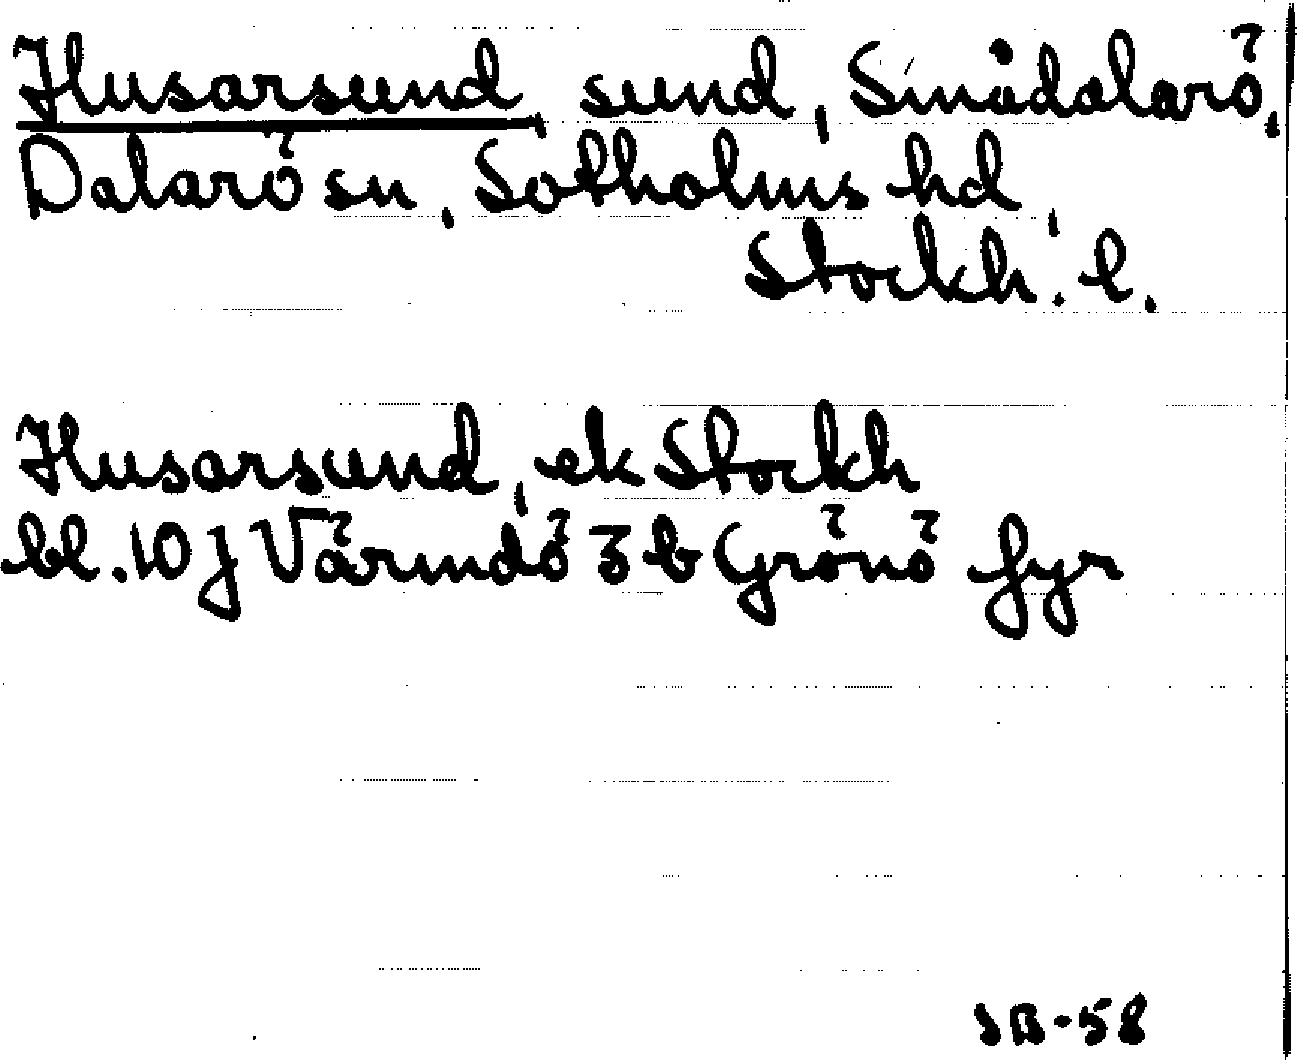 Husarsund, sund, Smådalarö,
Dalarö sn, Sotholms hd,
Stockh. l.
Husarsund, ek Stockh
bl. 10 J Värmdö 3 b Grönö fyr
SB-58